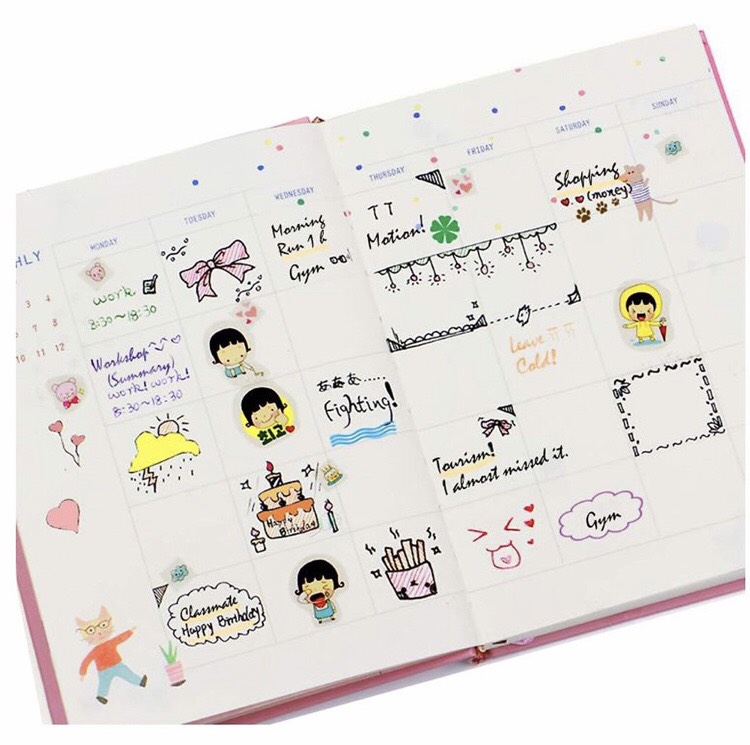 HLY
MONDAY
TUESDAY
WEDNESDAY
THURSDAY
FRIDAY
SATURDAY
SUNDAY
3 4
6 7 8
10 11 12
work
8:30~18:30
Morning
Run 1h
Gym
TT
Motion!
Shopping
(money)
Workshop
(Summary)
work! work!
8:30~18:30
Leave TT
Cold!
あああ.....
Fighting!
Tourism!
I almost missed it.
Happy
Birthday
Gym
Classmate
Happy Birthday